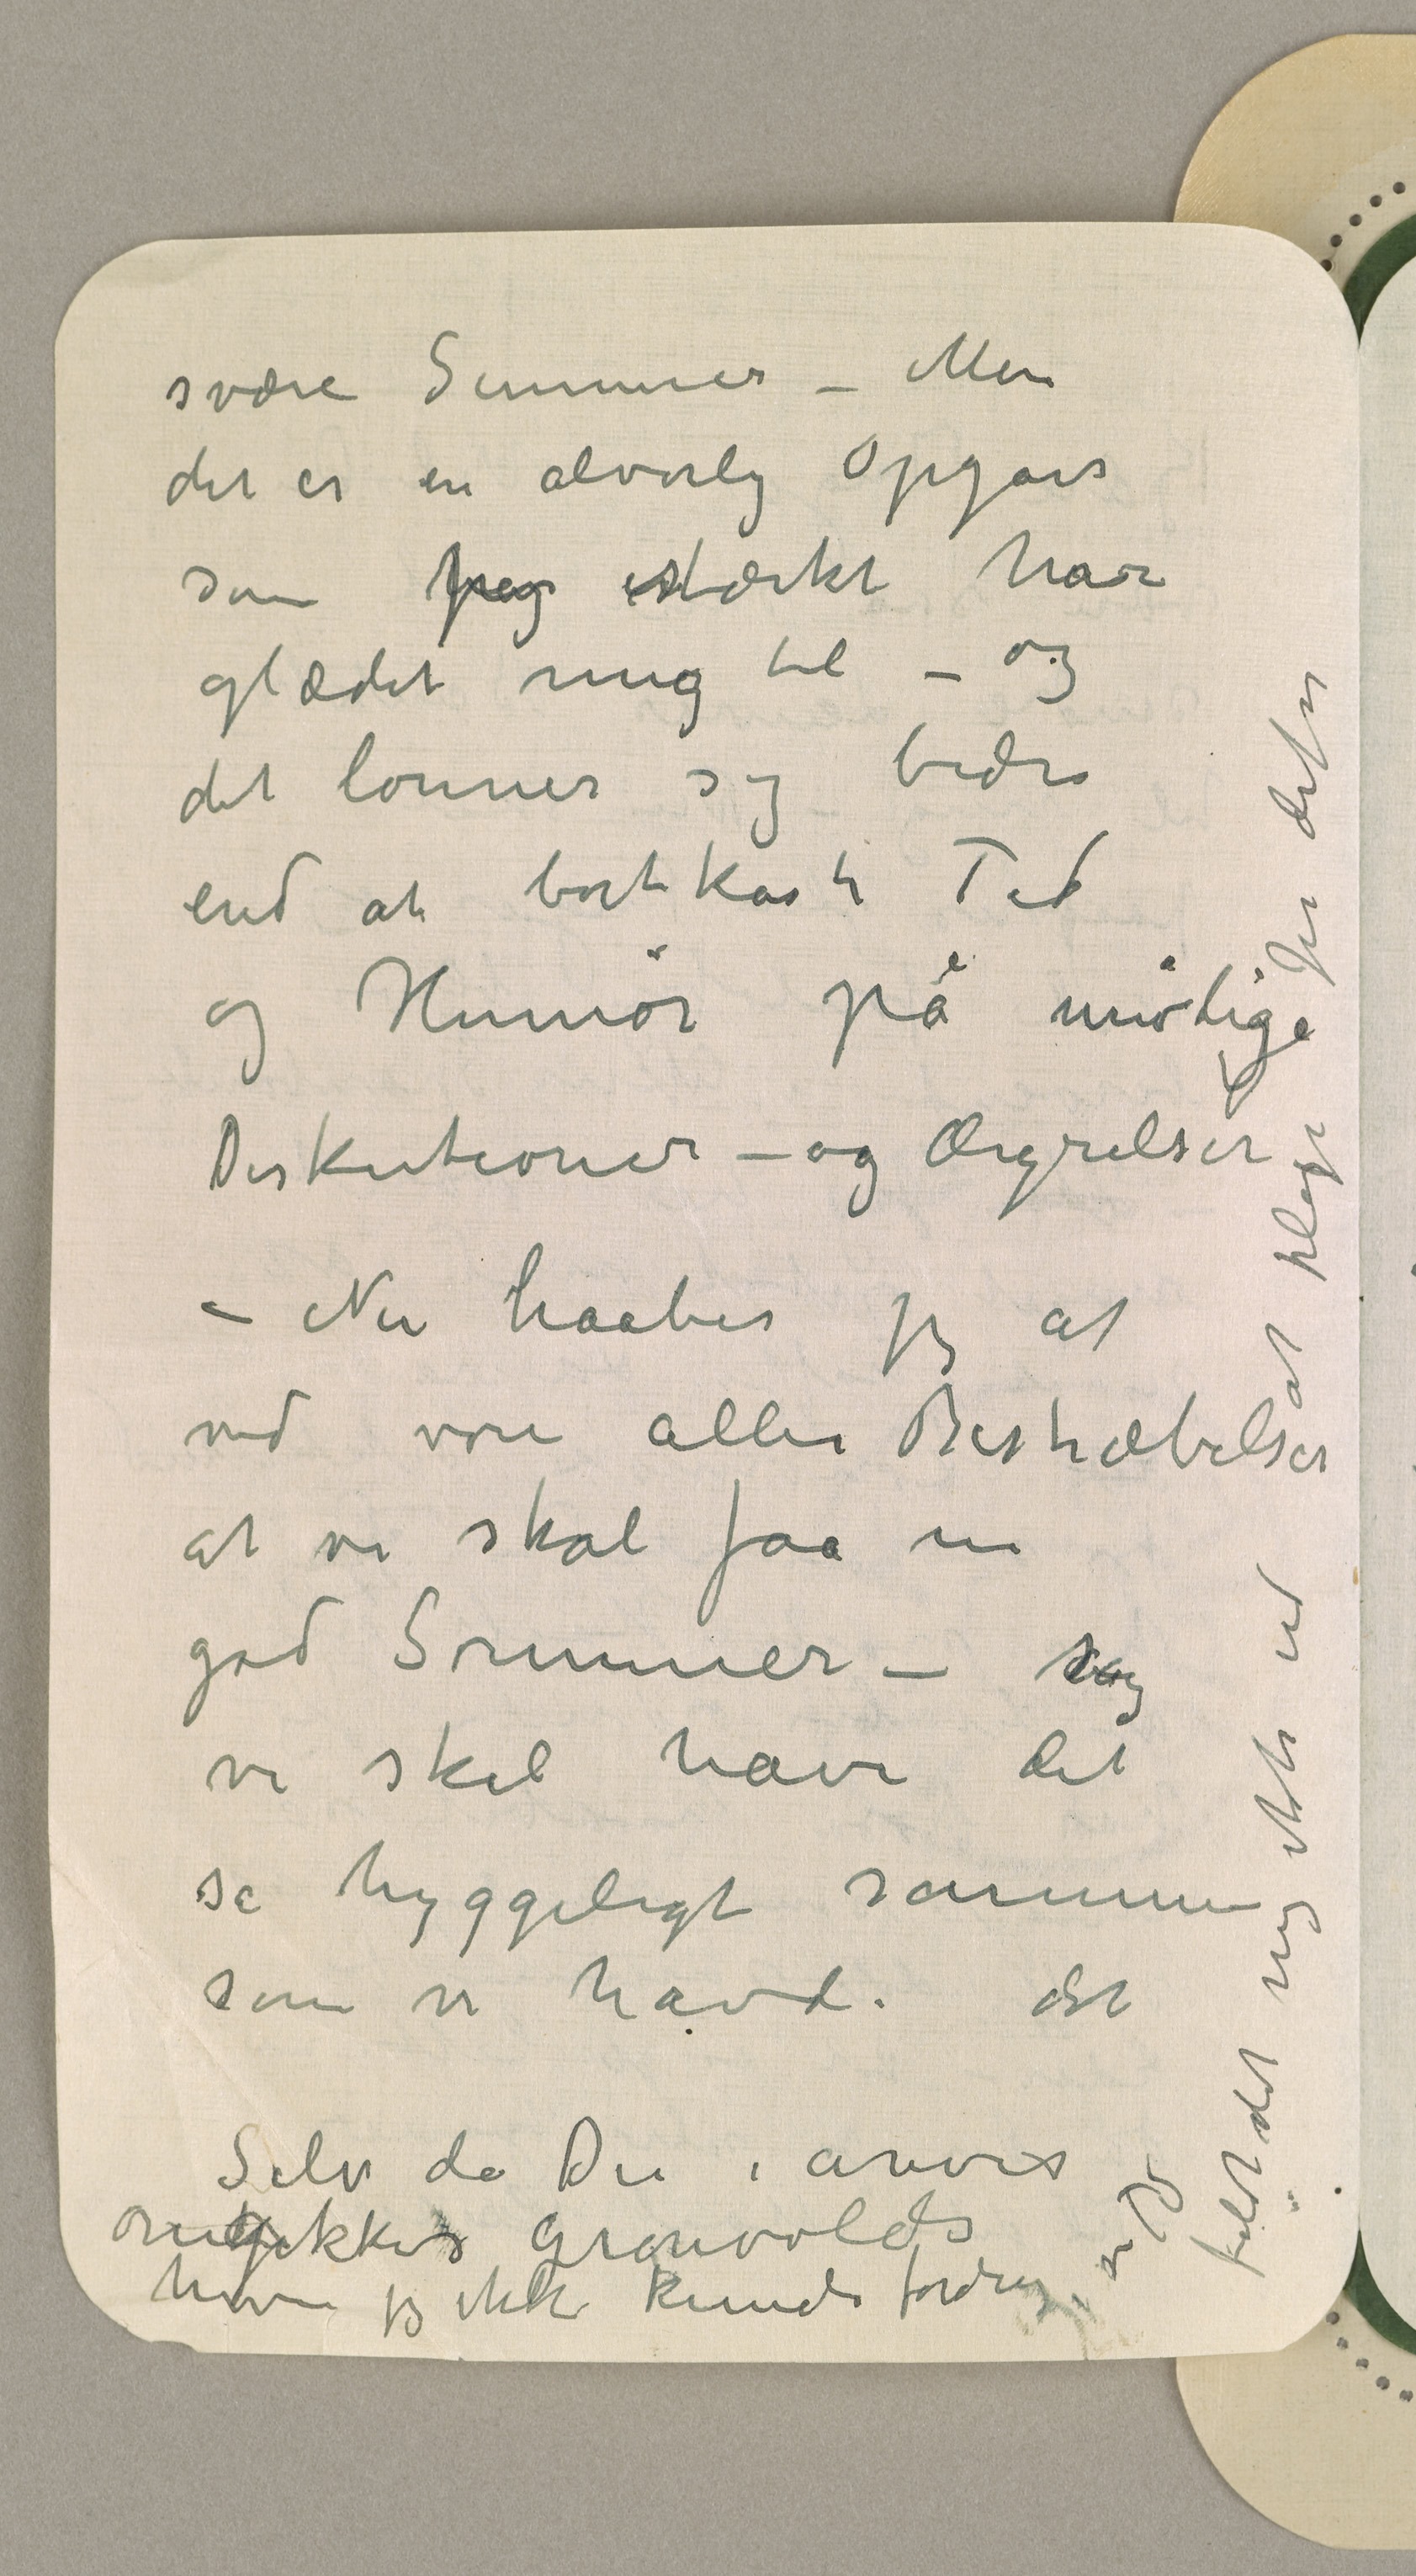 svære Summer – Men
det er en alvorlig Opgave
som jeg stærkt har
glædet mig til – og
det lønner sig bedre
end at bortkaste Tid
og Humør på unödige
Diskutioner – og Ærgrelser
– Nu haaber jeg at
ved vore alles Bestræbelser
at vi skal faa en
god Sommer – og
vi skal have det
så hyggeligt sammen
som vi havde det
Selv da Du i avvex
omgikkes Grønvolds
havde jeg ikke kunde fordrag
feldt det mig ikke ind
at plage Jer dermed